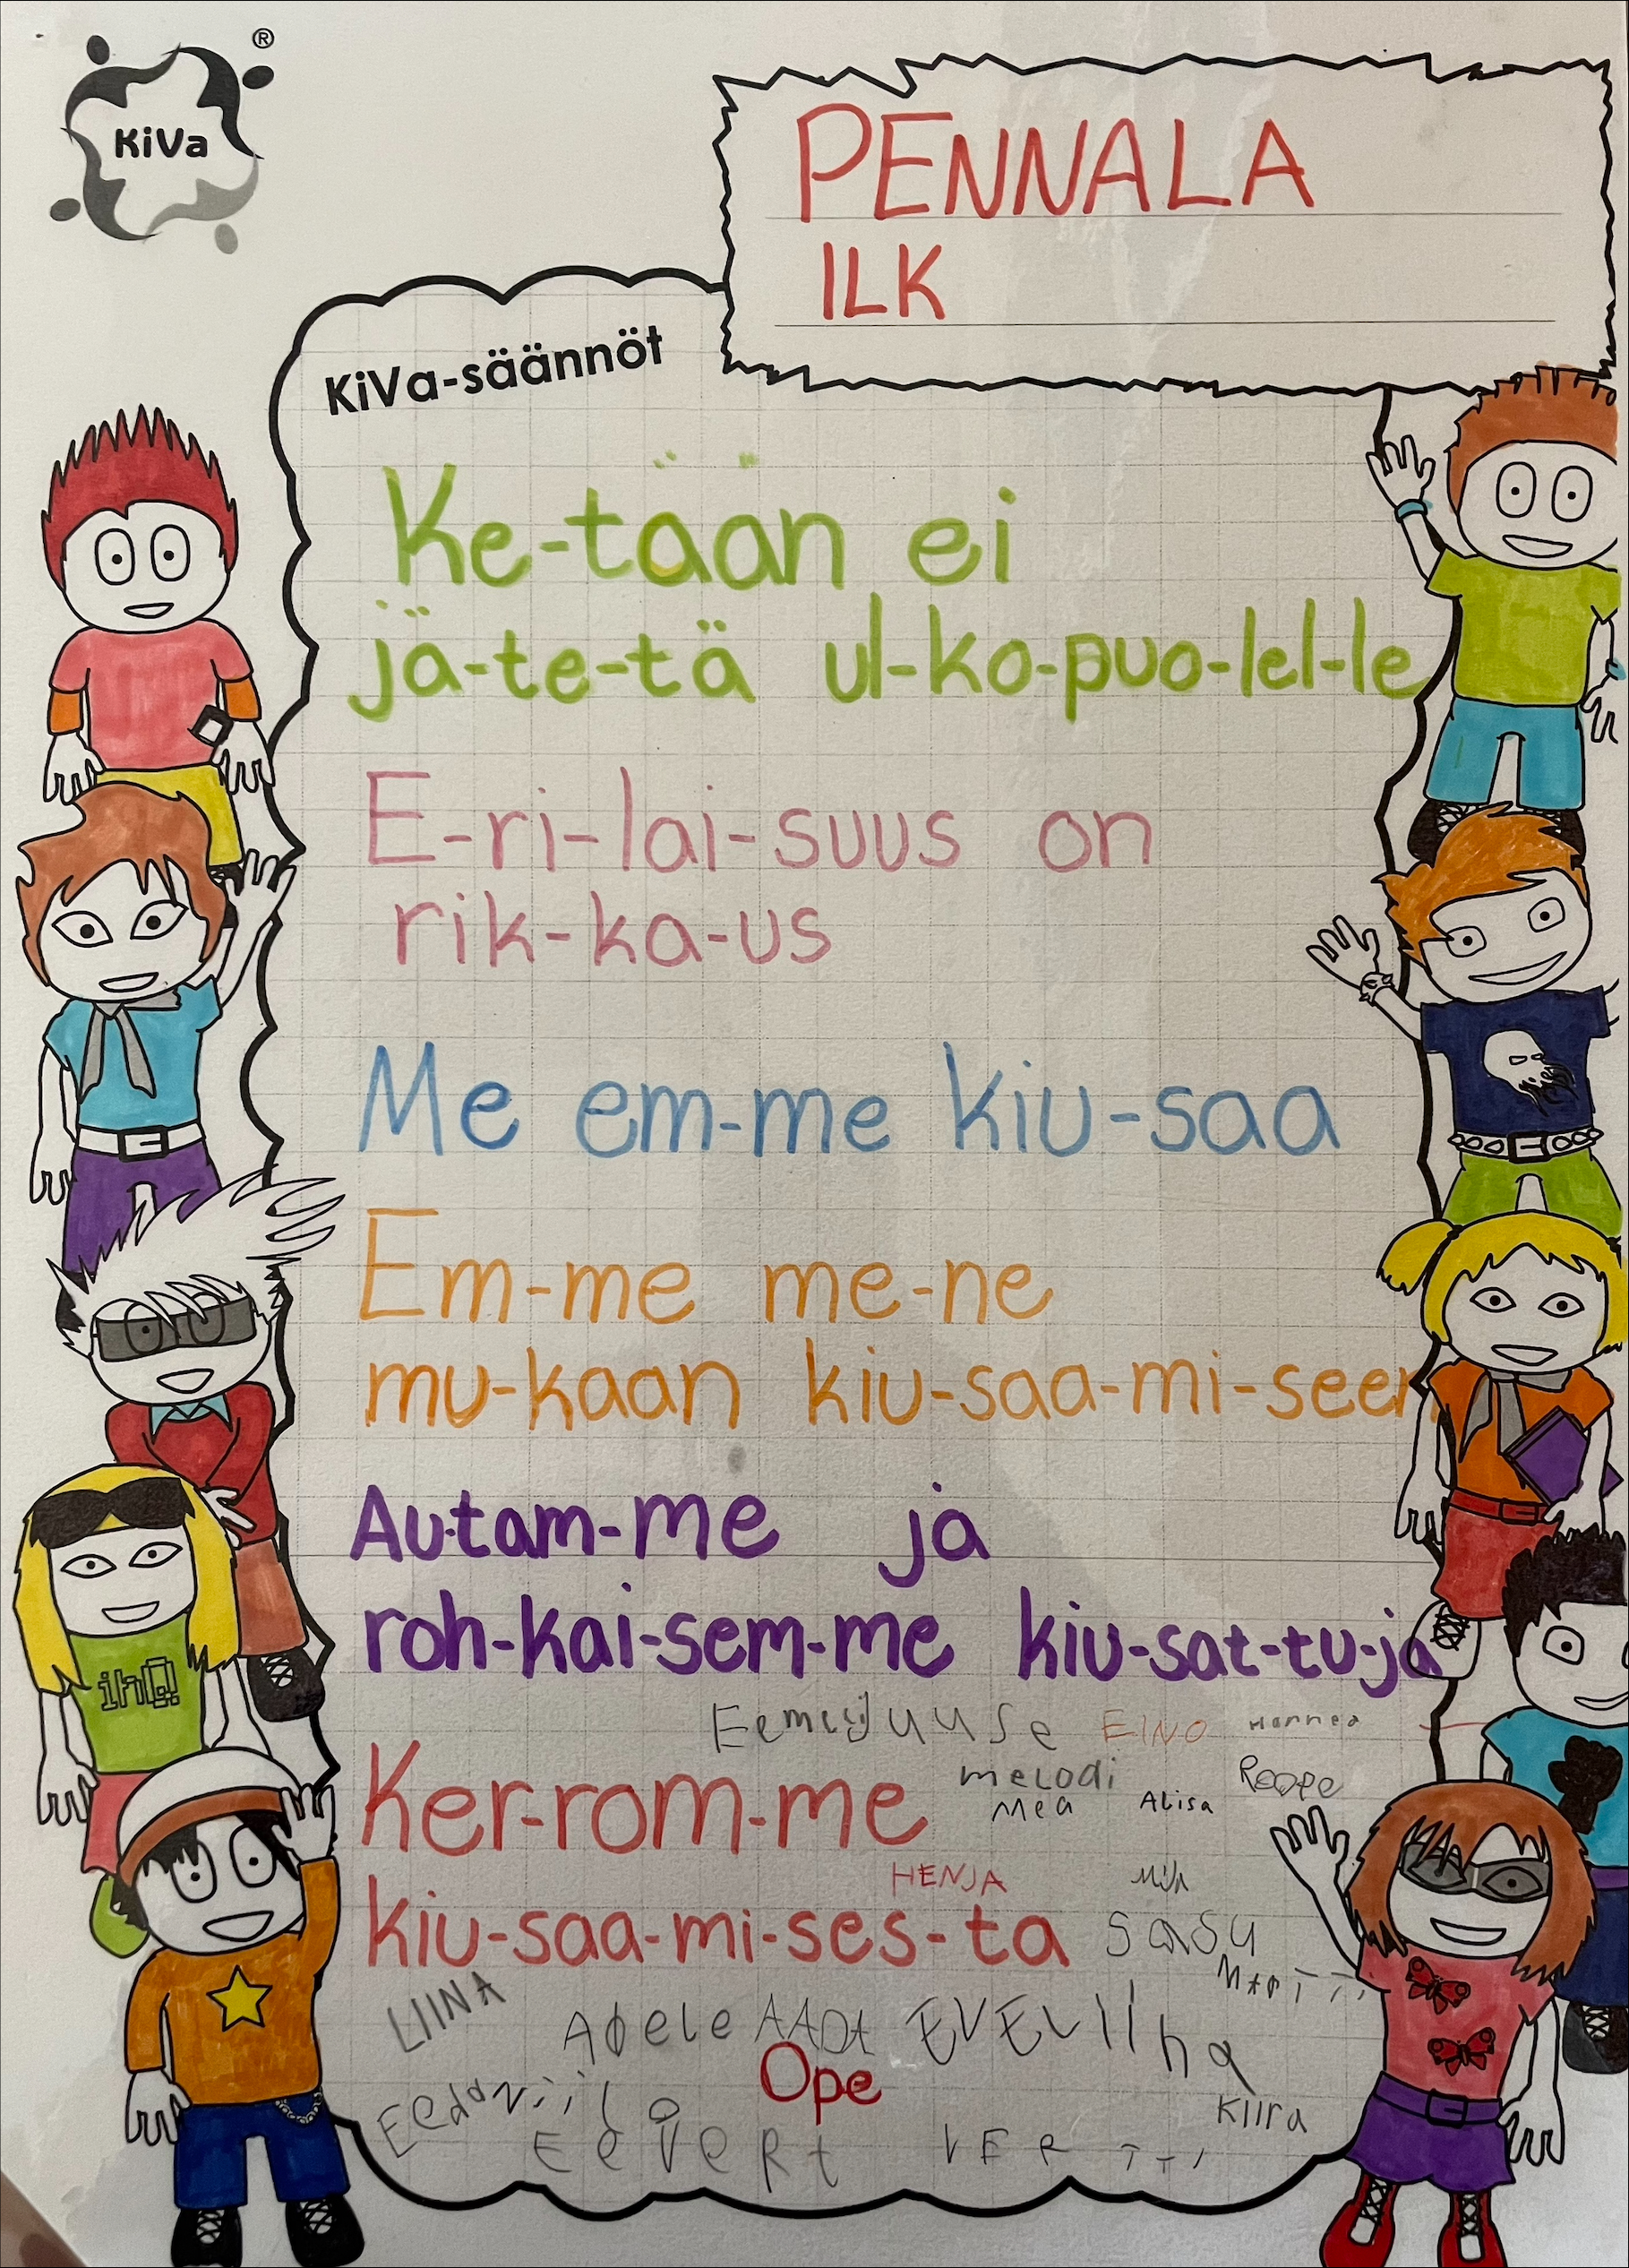 KiVa ®
PENNALA
ILK
KiVa-säännöt
Ke-tään ei
jä-te-tä ul-ko-puo-lel-le
E-ri-lai-suus on
rik-ka-us
Me em-me kiu-saa
Em-me me-ne
mu-kaan kiu-saa-mi-seen
Au-tam-me ja
roh-kai-sem-me kiu-sat-tu-ja
Eemeli Juuse EINO
Ker-rom-me melodi Roope
Mea Alisa
HENJA
kiu-saa-mi-ses-ta sasu
MARTTI
LIINA Adele AADA EVELIIna
Ope
Kiira
EeVeRt VERTTI
iHQ!